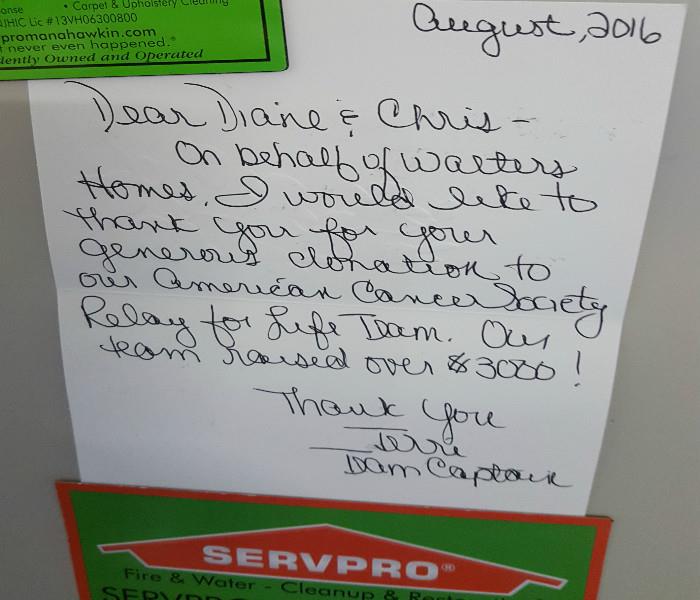 onse • Carpet & Upholstery Cleaning
HIC Lic #13VH06300800
promanahawkin.com
t never even happened.®
dently Owned and Operated
August, 2016
Dear Diane & Chris -
On behalf of Walters
Homes, I would like to
thank you for your
generous donation to
our American Cancer Society
Relay for Life Team. Our
team raised over $3000!
Thank You
Terri
Team Captain
SERVPRO®
Fire & Water - Cleanup & Resto
SERVPRO